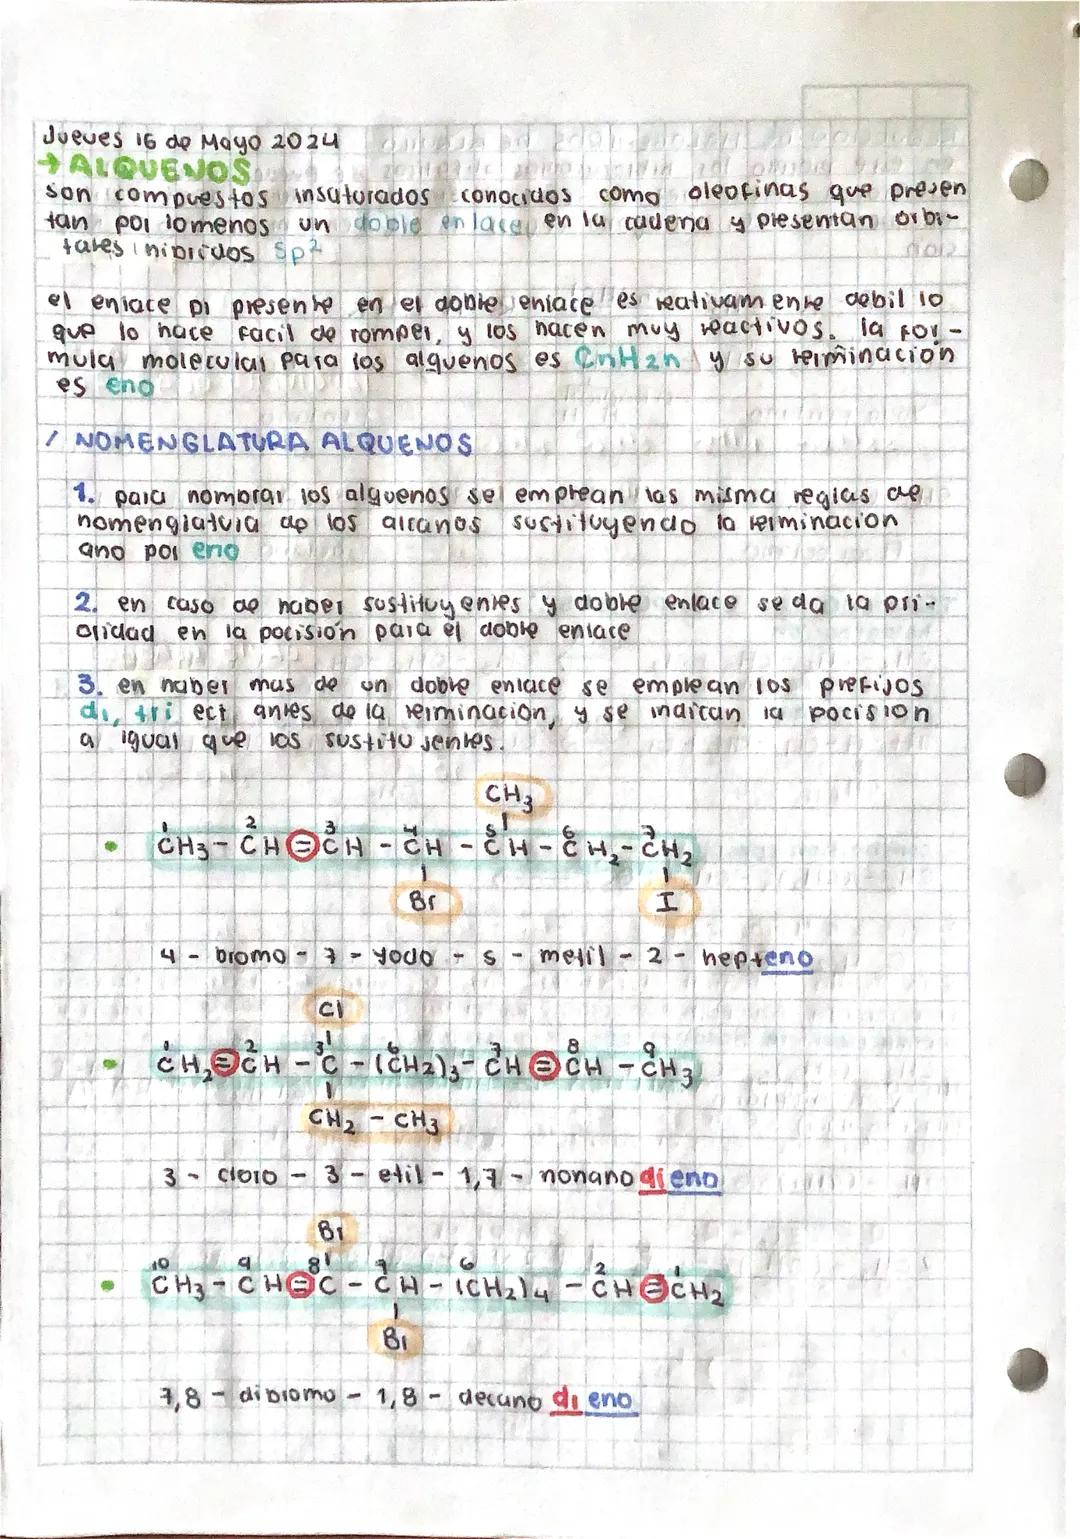 Jueves 16 de Mayo 2024
→ ALQUENOS
son compuestos insaturados conocidos como oleofinas que presen
tan por lomenos un doble enlace en la cadena y presentan orbi-
tales hibridos Sp²
el enlace pi presente en el doble enlace es reativamente debil lo
que lo hace facil de romper, y los hacen muy reactivos. la for-
mula molecular para los alquenos es CnH2n y su terminación
es eno
/ NOMENGLATURA ALQUENOS
1. para nombrar los alquenos se emplean las misma reglas de
nomenglatura de los alcanos sustituyendo la terminacion
ano por eno
2. en caso de haber sustituyentes y doble enlace se da la pri-
oridad en la pocisión para el doble enlace
3. en haber mas de un doble enlace se emplean los prefijos
di, tri ect antes de la terminacion, y se indican la pocision
a igual que los sustitusentes.
CH3
1 2 3 4 5 6 7
CH3 - CH = CH - CH - CH - CH2 - CH2
Br I
4 - bromo - 7 - yodo - 5 - metil - 2 - hepteno
Cl
1 2 3 6 7 8 9
CH2 = CH - C - (CH2)3 - CH = CH - CH3
CH2 - CH3
3 - cloro - 3 - etil - 1,7 - nonanodieno
Br
10 9 8 7 6 2 1
CH3 - CH = C - CH - (CH2)4 - CH = CH2
Br
7,8 - dibromo - 1,8 - decano dieno